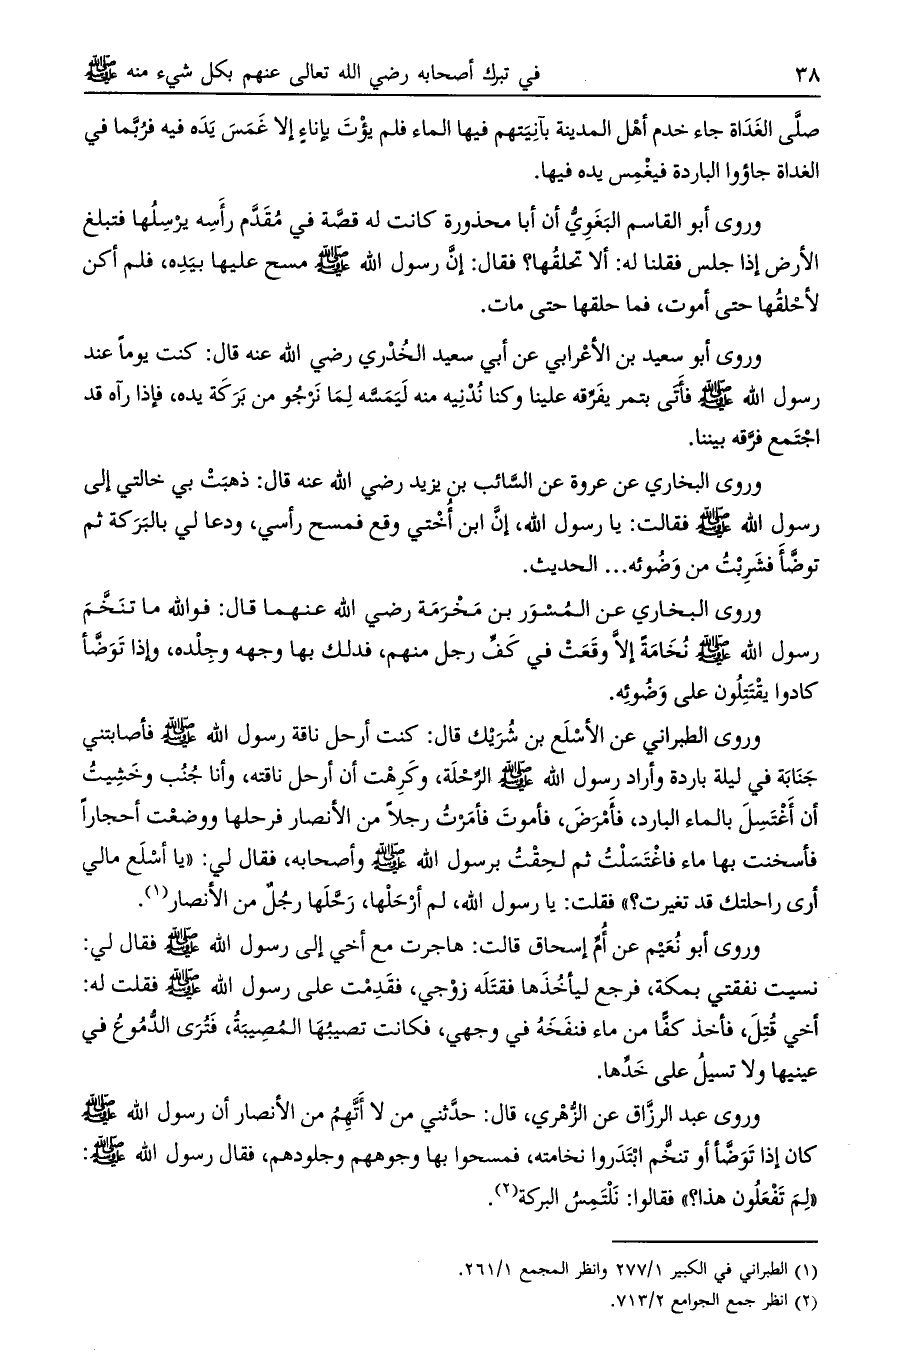 ٣٨ في تبرك أصحابه رضي الله تعالى عنهم بكل شيء منه ﷺ
صلَّى الغَدَاة جاء خدم أهْل المدينة بآنِيَتهم فيها الماء فلم يؤْتَ بإناءٍ إلا غَمَسَ يَدَه فيه فرُبَّما في
الغداة جاؤوا الباردة فيغْمِس يده فيها.
وروى أبو القاسم البَغَوِيُّ أن أبا محذورة كانت له قصَّة في مُقَدَّم رأَسِه يرْسِلُها فتبلغ
الأرض إذا جلس فقلنا له: ألا تحلقُها؟ فقال: إنَّ رسول الله ﷺ مسح عليها بيَدِه، فلم أكن
لأحْلقُها حتى أموت، فما حلقها حتى مات.
وروى أبو سعيد بن الأعْرابي عن أبي سعيد الخُدْري رضي الله عنه قال: كنت يوماً عند
رسول الله ﷺ فأَتَى بتمر يفَرِّقه علينا وكنا نُدْنِيه منه لَيَمَسَّه لِمَا نَرْجُو من بَرَكَة يده، فإذا رآه قد
اجْتَمع فرَّقه بيننا.
وروى البخاري عن عروة عن السَّائب بن يزيد رضي الله عنه قال: ذهبَتْ بي خالتي إلى
رسول الله ﷺ فقالت: يا رسول الله، إنَّ ابن أُخْتي وقع فمسح رأسي، ودعا لي بالبَرَكة ثم
توضَّأَ فشَرِبْتُ من وَضُوئه... الحديث.
وروى البخاري عن المُسْوَر بن مَخْرَمَة رضي الله عنهما قال: فوالله ما تنَخَّمَ
رسول الله ﷺ نُخَامَةً إلاَّ وقَعَتْ في كَفِّ رجل منهم، فدلك بها وجهه وجِلْده، وإذا تَوَضَّأ
كادوا يقْتَتِلُون على وَضُوئِه.
وروى الطبراني عن الأسْلَع بن شُرَيْك قال: كنت أرحل ناقة رسول الله ﷺ فأصابتني
جَنَابَة في ليلة باردة وأراد رسول الله ﷺ الرِّحْلَة، وكَرِهْت أن أرحل ناقته، وأنا جُنُب وخَشِيتُ
أن أَغْتَسِلَ بالماء البارد، فأَمْرَضَ، فأموتَ فأمَرْتُ رجلاً من الأنصار فرحلها ووضعْت أحجاراً
فأسخنت بها ماء فاغْتَسَلْتُ ثم لحِقْتُ برسول الله ﷺ وأصحابه، فقال لي: «يا أسْلَع مالي
أرى راحلتك قد تغيرت؟» فقلت: يا رسول الله، لم أرْحَلْها، رَحَّلَها رجُلٌ من الأنصار(١).
وروى أبو نُعَيْم عن أُمِّ إسحاق قالت: هاجرت مع أخي إلى رسول الله ﷺ فقال لي:
نسيت نفقتي بمكة، فرجع ليأخُذَها فقتَلَه زوْجي، فقَدِمْت على رسول الله ﷺ فقلت له:
أخي قُتِلَ، فأخذ كفًّا من ماء فنفَخَهُ في وجهي، فكانت تصيبُهَا المُصِيبَةُ، فَتُرَى الدُّمُوعُ في
عينيها ولا تسيلُ على خَدِّها.
وروى عبد الرزَّاق عن الزُّهْري، قال: حدَّثني من لا أَتَّهِمُ من الأنصار أن رسول الله ﷺ
كان إذا تَوَضَّأ أو تنخَّم ابْتَدَروا نخامته، فمسحوا بها وجوههم وجلودهم، فقال رسول الله ﷺ:
«لِمَ تَفْعَلُون هذا؟» فقالوا: نَلْتَمِسُ البركة(٢).
(١) الطبراني في الكبير ٢٧٧/١ وانظر المجمع ٢٦١/١.
(٢) انظر جمع الجوامع ٧١٣/٢.